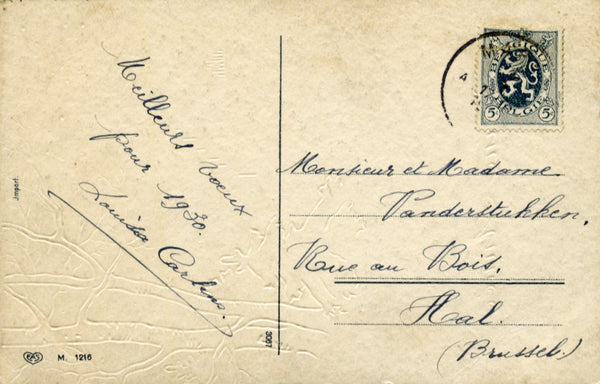 Meilleurs voeux
pour 1930.
Louisa Carlier.
BELGIQUE
BELGIË
5 5
Monsieur et Madame
Vanderstukken,
Rue au Bois.
Hal.
(Brussel.)
Import.
3087
EAS M. 1216